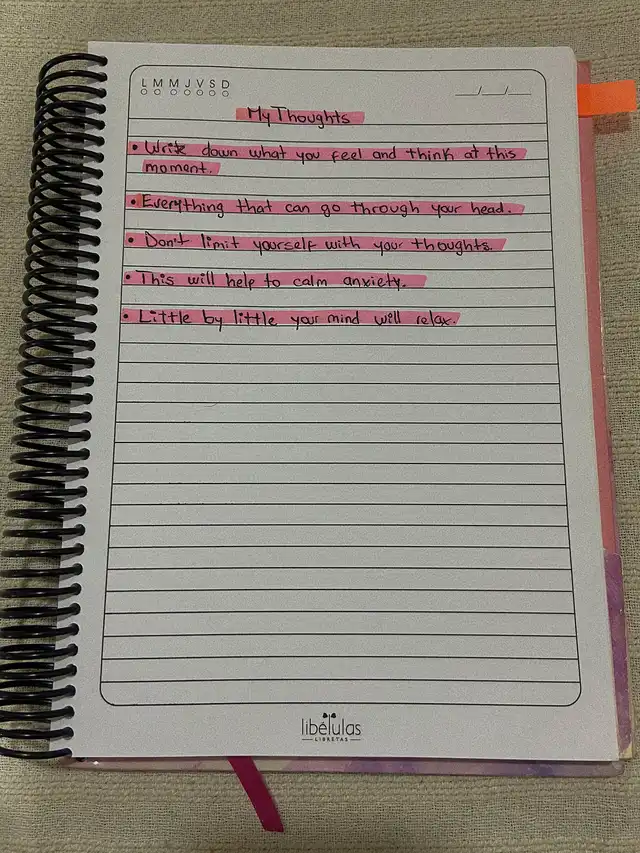 L M M J V S D
__/__/__
My Thoughts
• Write down what you feel and think at this
moment.
• Everything that can go through your head.
• Don't limit yourself with your thoughts.
• This will help to calm anxiety.
• Little by little your mind will relax.
libélulas
LIBRETAS